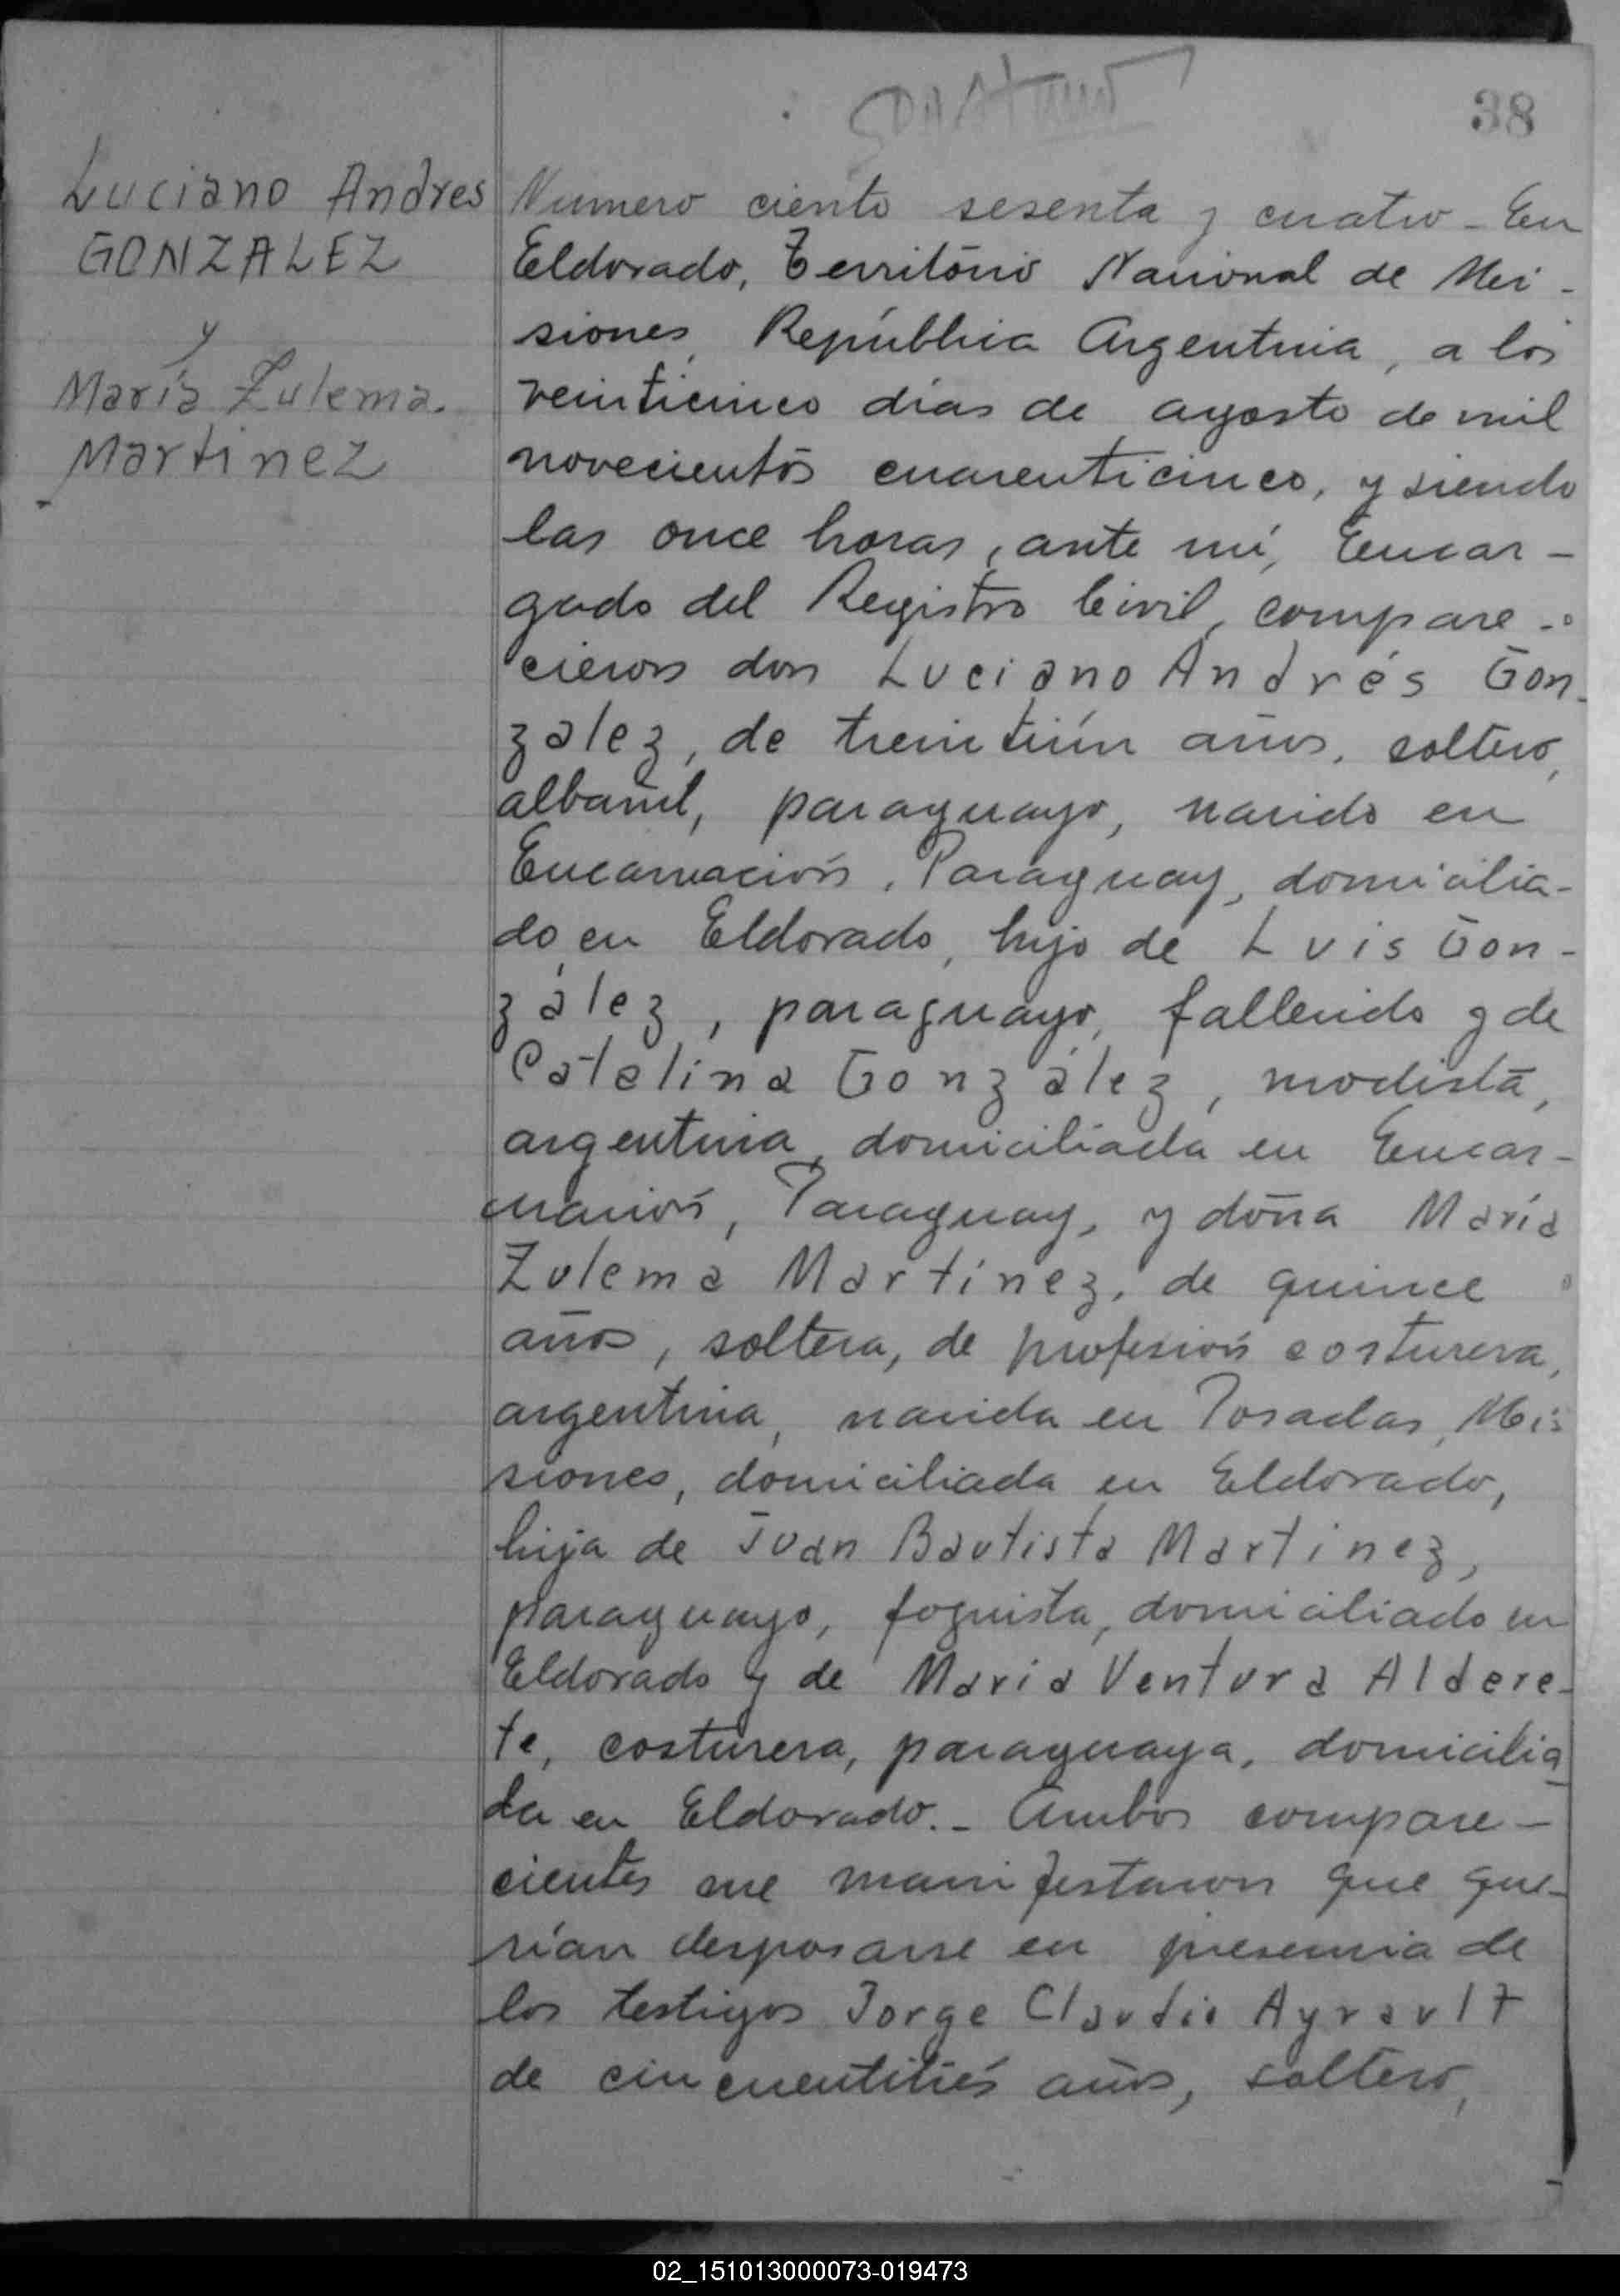 38
Luciano Andres
GONZALEZ
y
María Zulema.
Martinez
Numero ciento sesenta y cuatro - En
Eldorado, Território Nacional de Mi-
siones, República Argentina, a los
veinticinco días de agosto de mil
novecientos cuarenticinco, y siendo
las once horas, ante mí, Encar-
gado del Registro Civil, compare-
cieron don Luciano Andrés Gon-
zalez, de treintiún años, soltero,
albañil, paraguayo, nacido en
Encarnación, Paraguay, domicilia-
do en Eldorado, hijo de Luis Gon-
zález, paraguayo, fallecido y de
Catalina González, modista,
argentina, domiciliada en Encar-
nación, Paraguay, y doña María
Zulema Martínez, de quince
años, soltera, de profesión costurera,
argentina, nacida en Posadas, Mi-
siones, domiciliada en Eldorado,
hija de Juan Bautista Martinez,
paraguayo, foguista, domiciliado en
Eldorado y de Maria Ventura Aldere-
te, costurera, paraguaya, domicilia
da en Eldorado.- Ambos compare-
cientes me manifestaron que que-
rían desposarse en presencia de
los testigos Jorge Claudio Ayrault
de cincuentitrés años, soltero,
02_151013000073-019473